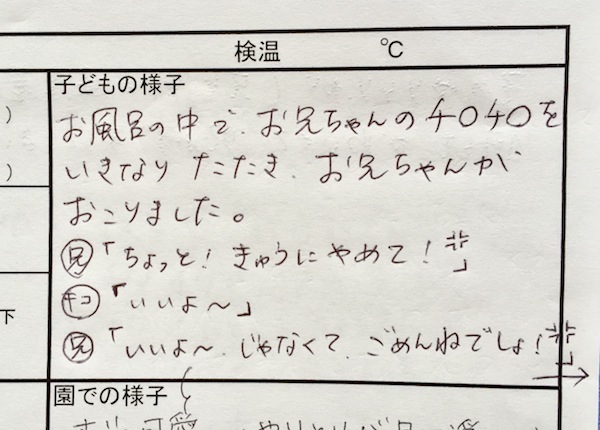 検温 ℃
)
子どもの様子
お風呂の中で、お兄ちゃんのチ〇チ〇を
)
いきなりたたき、お兄ちゃんが
おこりました。
兄「ちょっと!きゅうにやめて!」
キコ「いいよ〜」
下
兄「いいよ〜、じゃなくて、ごめんねでしょ!」
→
園での様子